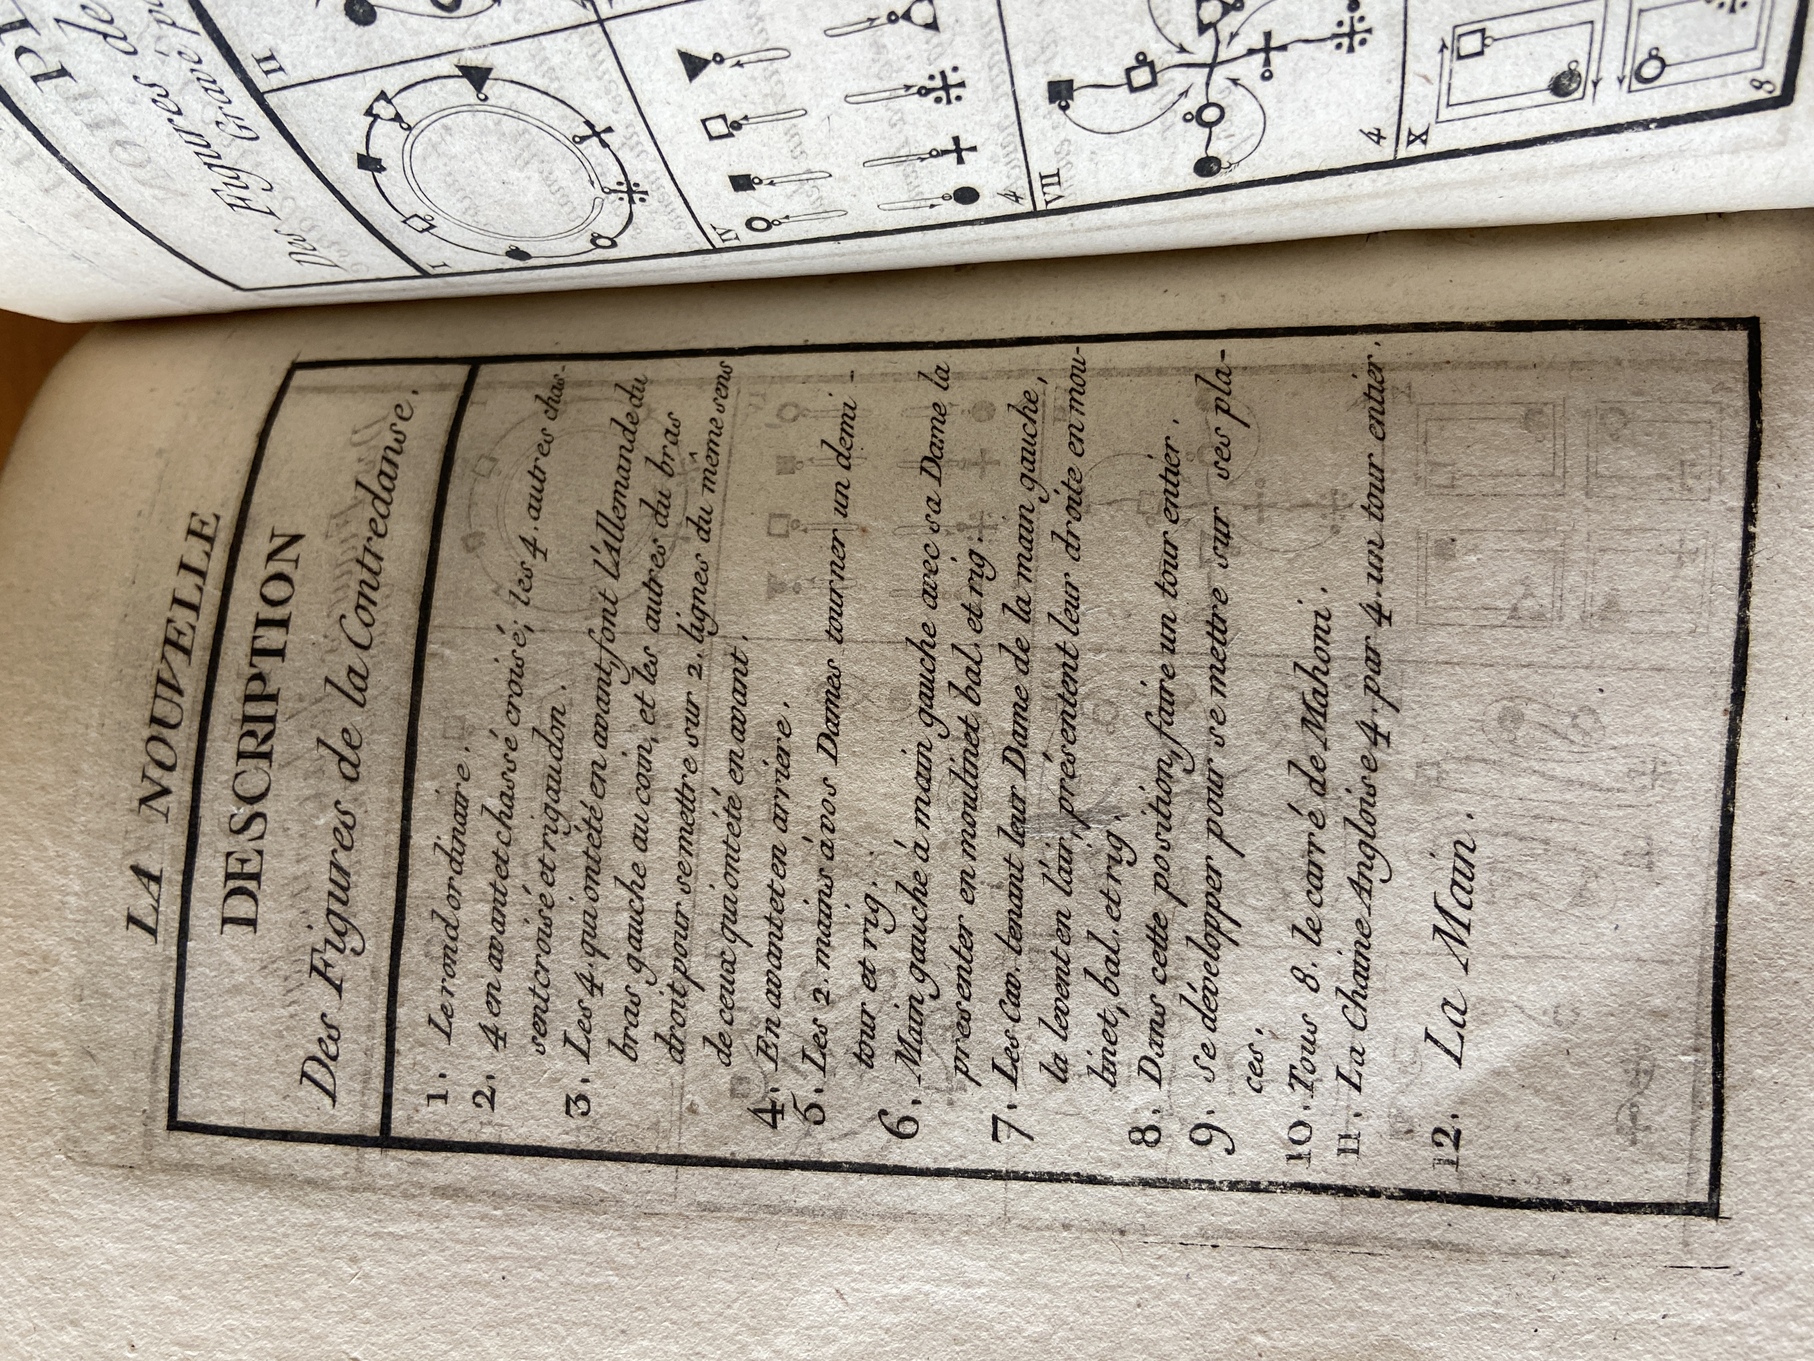 LA NOUVELLE
DESCRIPTION
Des Figures de la Contredanse.
1. Le rond ordinaire.
2. 4 en avant et chassé croisé; les 4. autres chas-
sent croisé et rigaudon.
3. Les 4. qui ont été en avant, font l'Allemande du
bras gauche au coin, et les autres du bras
droit pour se mettre sur 2. lignes du même sens
de ceux qui ont été en avant.
4. En avant et en arrière.
5. Les 2. mains à vos Dames tourner un demi-
tour et rig.
6. Main gauche à main gauche avec sa Dame la
presenter en moulinet, bal. et rig.
7. Les Cav. tenant leur Dame de la main gauche,
la levent en l'air, présentent leur droite en mou-
linet, bal. et rig.
8. Dans cette position, faire un tour entier.
9. se développer pour se mettre sur ses pla-
ces.
10. Tous 8. le carré de Mahoni.
11. La Chaine Angloise 4 par 4. un tour entier.
12. La Main.
Des Figures de
Gravé
I
II
IV
4
VII
4
X
8